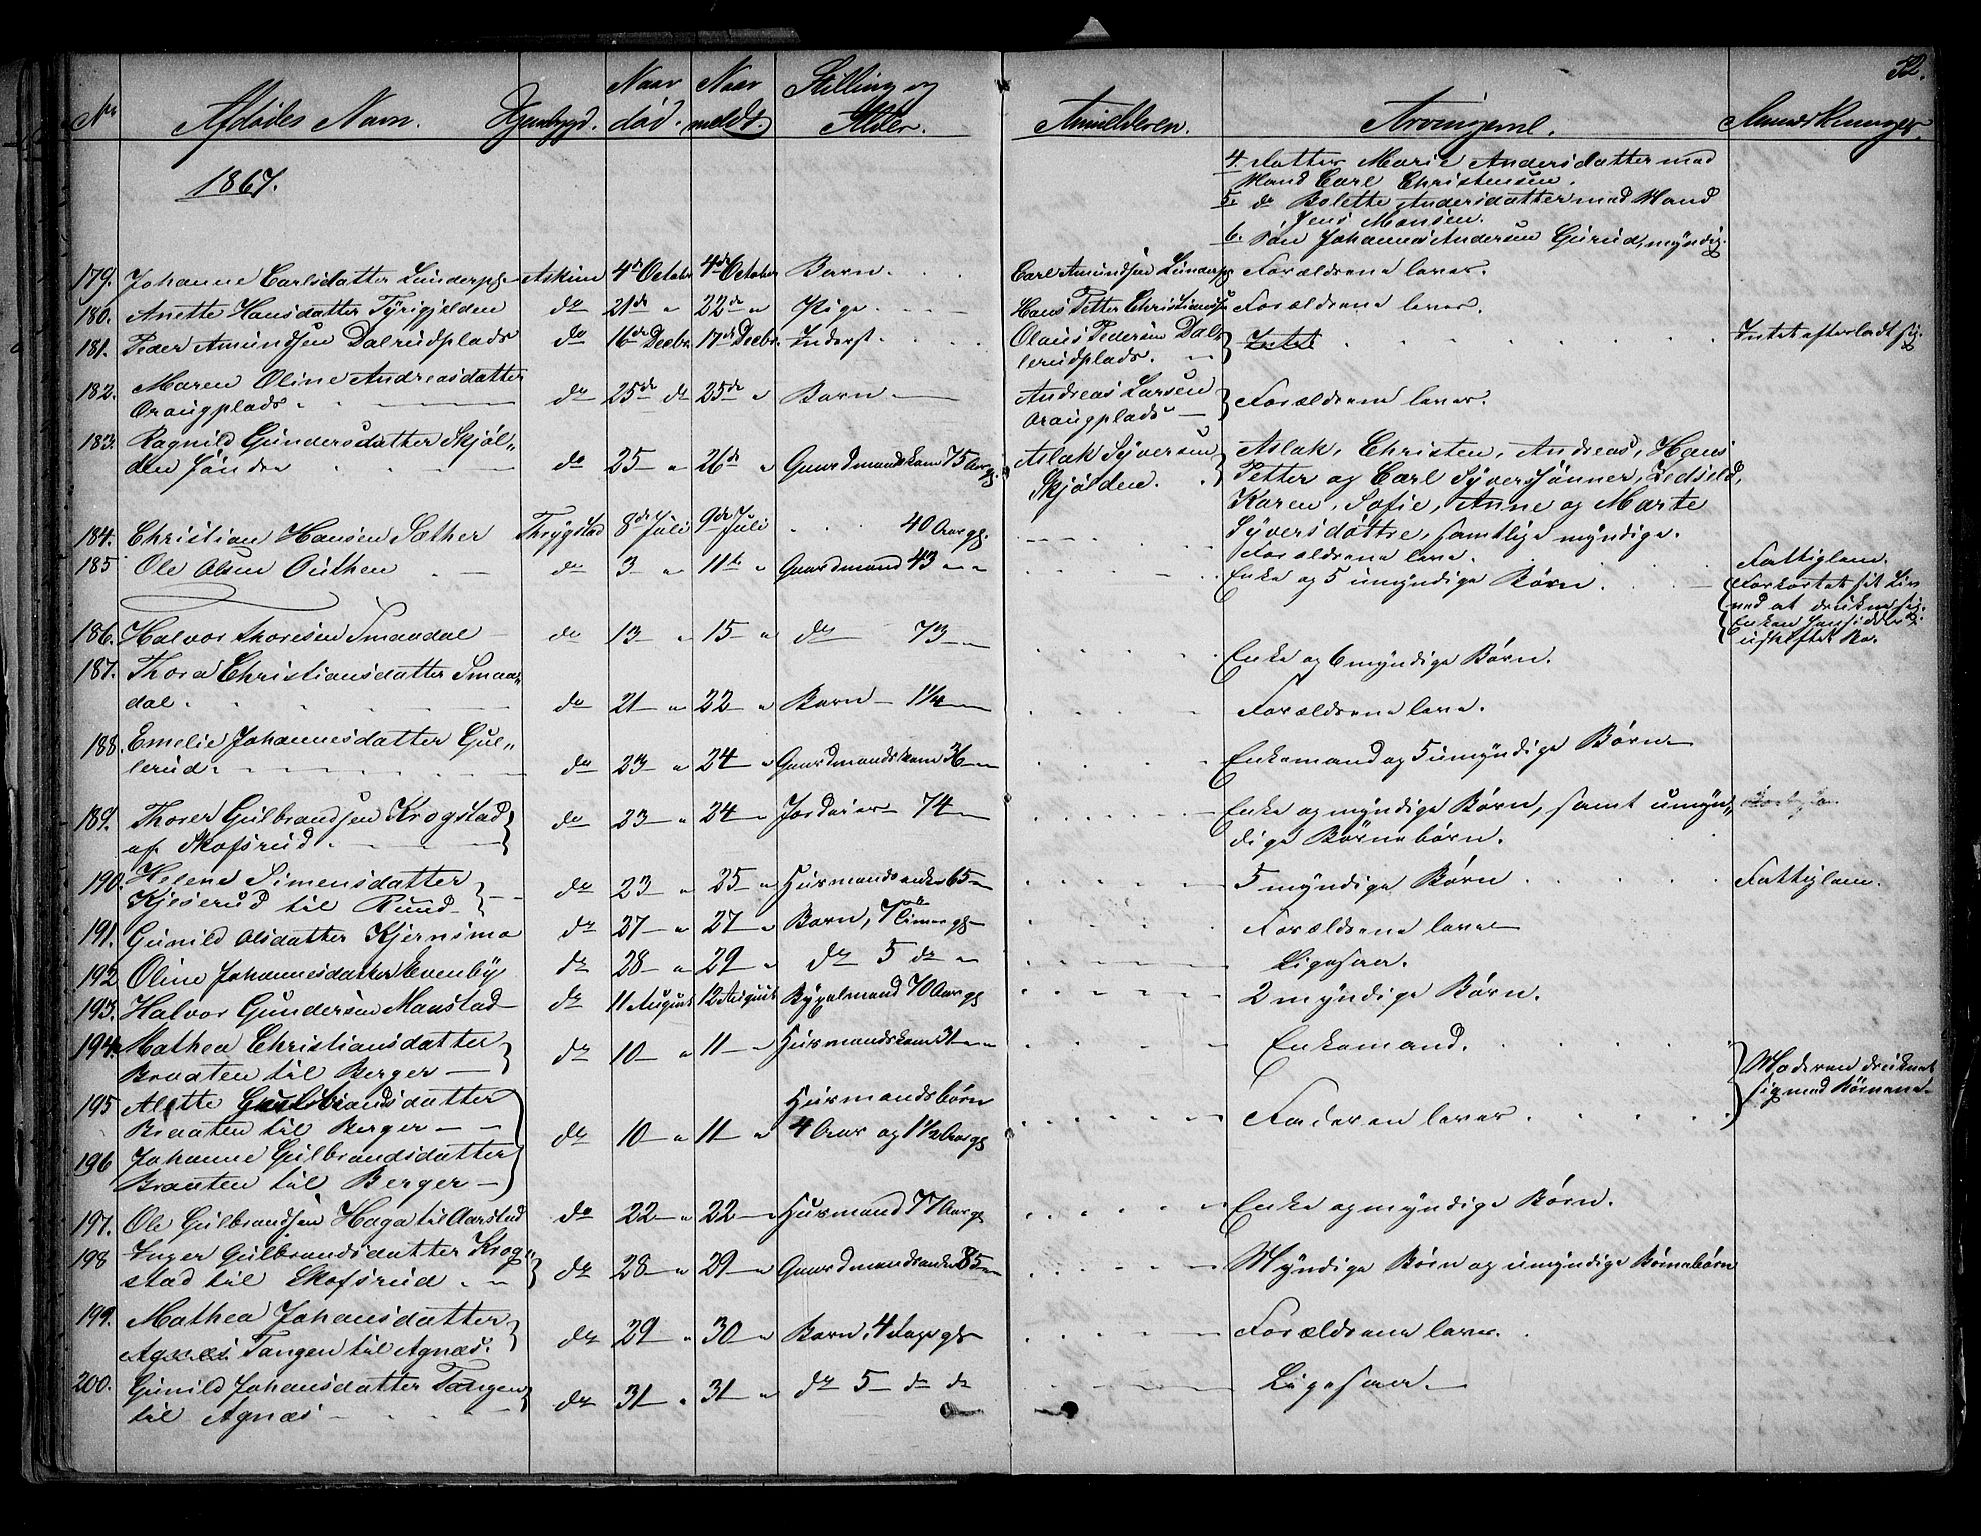 52.
No Afdødes Navn. Hjembygd. Naar død. Naar meldt. Stilling og Alder. Anmelderen. Arvingerne. Anmærkninger.
1867.
4. Datter Marie Andersdatter med
Mand Carl Christensen.
5. do Bolette Andersdatter med Mand
Jens Monsen.
6. Søn Johannes Andersen Gurud, myndig.
179. Johanne Carlsdatter Lunderpl. Askim 4de Octobr 4de October Barn. Carl Amundsen Lunderpl Forældrene lever.
180. Anette Hansdatter Tyrigjelden do 21de " 22de " Pige. Hans Petter Christiansen Forældrene lever.
181. Peder Amundsen Dalrudplads do 16de Decbr. 17de Decbr. Inderst. Olaus Pedersen Dal-
lerudplads. Intet Intet efterladt sig.
182. Maren Oline Andreasdatter
Oraugplads. do 25de do 25de " Barn Andreas Larsen
Oraugplads Forældrene lever.
183. Ragnild Gundersdatter Skjøl„
den søndre do 25 " 26de " Gaardmandskone 75 Aar gl. Aslak Syversen
Skjølden. Aslak, Christen, Andreas, Hans
Petter og Carl Syverssønner, Ledseld,
Karen, Sofie, Anne og Marte
Syversdøttre, samtlige myndige.
184. Christian Hansen Sæther Thrygstad 8de Juli 9de Juli 40 Aar gl. Forældrene leve. Fattiglem.
185 Ole Olsen Outhen do 3 " 11te " Gaardmand 43 " " Enke og 5 umyndige Børn. Forkortet sit Liv
ved at drukne sig.
Enken hensidder i
uskiftet Bo.
186. Halvor Thoresen Smaadal do 13 " 15 " do 73 " Enke og 6 myndige Børn.
187. Thora Christiansdatter Smaa„
dal. do 21 " 22 " Barn 1 1/4 Forældrene leve.
188. Emelie Johannesdatter Gul„
lerud. do 23 " 24 " Gaardmandskone 36 " Enkemand og 5 umyndige Børn
189. Thorer Gulbrandsen Krogstad
af Skofsrud. do 23 " 24 " Jordeier 74 Enke og myndige Børn, samt umyn„
dige Børnebørn.
190. Helene Simensdatter
Kjeserud til Rund do 23 " 25 " Husmandsenke 65 5 myndige Børn Fattiglem.
191. Gunild Olsdatter Kjernsmo do 27 " 27 " Barn, 7 Timer gl. Forældrene leve
192 Oline Johannesdatter Evenby do 28 " 29 " do 5 do " Ligesaa.
193. Halvor Gundersen Maastad do 11 August 12 August Bygselmand 70 Aar gl 2 myndige Børn.
194. Mathea Christiansdatter
Braaten til Berger do 10 " 11 " Husmandskone 31 " " Enkemand.
195 Alette Gulbrandsdatter
Braaten til Berger do 10 " 11 " Husmandsbørn
4 Aar og 1 1/2 Aar gl Faderen lever. Moderen druknet
sig med Børnene
196 Johanne Gulbrandsdatter
Braaten til Berger
197. Ole Gulbrandsen Haga til Aarstad do 22 " 22 " Husmand 77 Aar gl Enke og myndige Børn.
198 Inger Gulbrandsdatter Krog„
stad til Skofsrud. do 28 " 29 " Gaardmandsenke 85 Myndige Børn og umyndige Børnebørn
199. Mathea Johansdatter
Agnæs Tangen til Agnæs. do 29 " 30 " Barn, 4 Dage gl Forældrene lever.
200. Gunild Johansdatter Tangen
til Agnæs do 31 " 31 " do 5 do do Ligesaa.